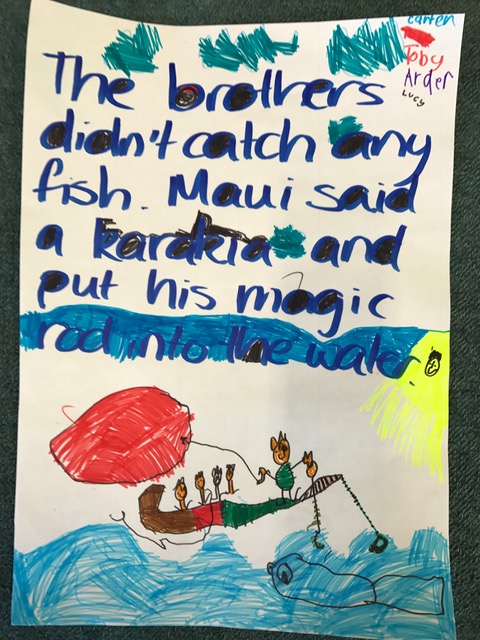 Toby
Lucy
The brothers
didn't catch any
fish. Maui said
a karakia and
put his magic
rod into the water.